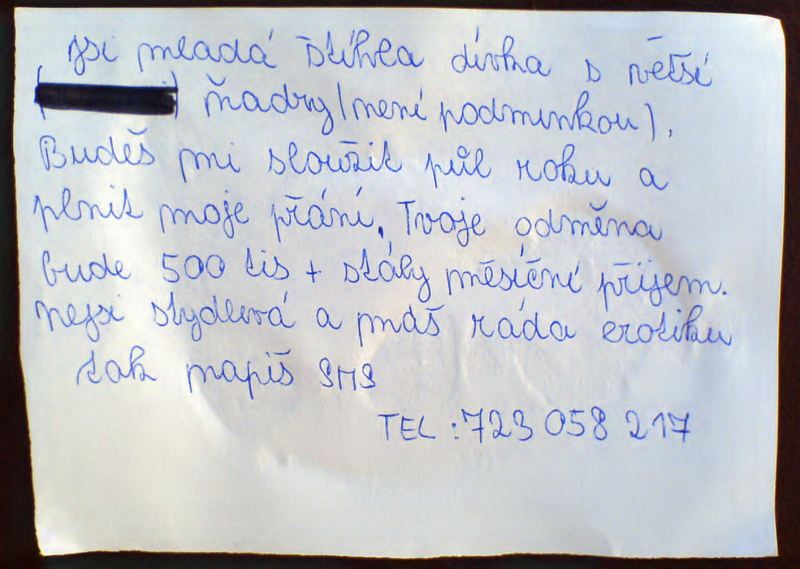 Jsi mladá štíhla dívka s větší
ňadry (není podmínkou).
Budeš mi sloužit půl roku a
plnit moje přání. Tvoje odměna
bude 500 tis + stály měsíční příjem.
Nejsi stydlivá a máš ráda erotiku
tak napiš SMS
TEL : 723 058 217